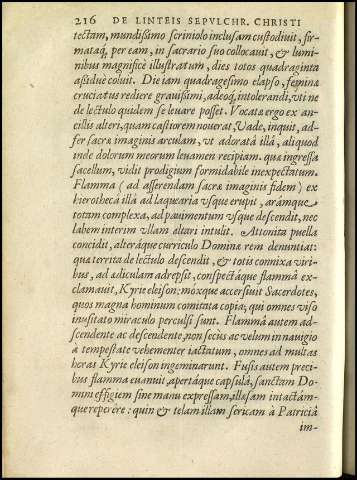 216 DE LINTEIS SEPVLCHR. CHRISTI
tectam, mundissimo scriniolo inclusam custodiuit, fir-
mataq́, per eam, in sacrario suo collocauit, & lumi-
nibus magnificè illustratum, dies totos quadraginta
assiduè coluit. Die iam quadragesimo elapso, feminæ
cruciatus rediere grauissimi, adeoq́, intolerandi, vti ne
de lectulo quidem se leuare posset. Vocatæ ergo ex an-
cillis alteri, quam castiorem nouerat, Vade, inquit, ad-
fer sacræ imaginis arculam, vt adoratâ illâ, aliquod
inde dolorum meorum leuamen recipiam. quæ ingressa
sacellum, vidit prodigium formidabile inexpectatum.
Flamma (ad asserendam sacræ imaginis fidem) ex
hierothecâ illâ ad laquearia vsque erupit, aràmque
totam complexa, ad pauimentum vsque descendit, nec
labem interim vllam altari intulit. Attonita puella
concidit, alteráque curriculo Dominæ rem denuntiat:
quæ territa de lectulo descendit, & totis connixa viri-
bus, ad ædiculam adrepsit, conspectáque flammâ ex-
clamauit, Kyrie eleison: móxque accersiuit Sacerdotes,
quos magna hominum comitata copia; qui omnes viso
inusitato miraculo perculsi sunt. Flammâ autem ad-
scendente ac descendente, non secus ac velum in nauigio
à tempestate vehementer iactatum, omnes ad multas
horas Kyrie eleison ingeminarunt. Fusis autem preci-
bus flamma euanuit, apertáque capsulâ, sanctam Do-
mini effigiem sine manu expressam, illæsam intactám-
que reperêre: quin & telam illam sericam à Patriciâ
im-